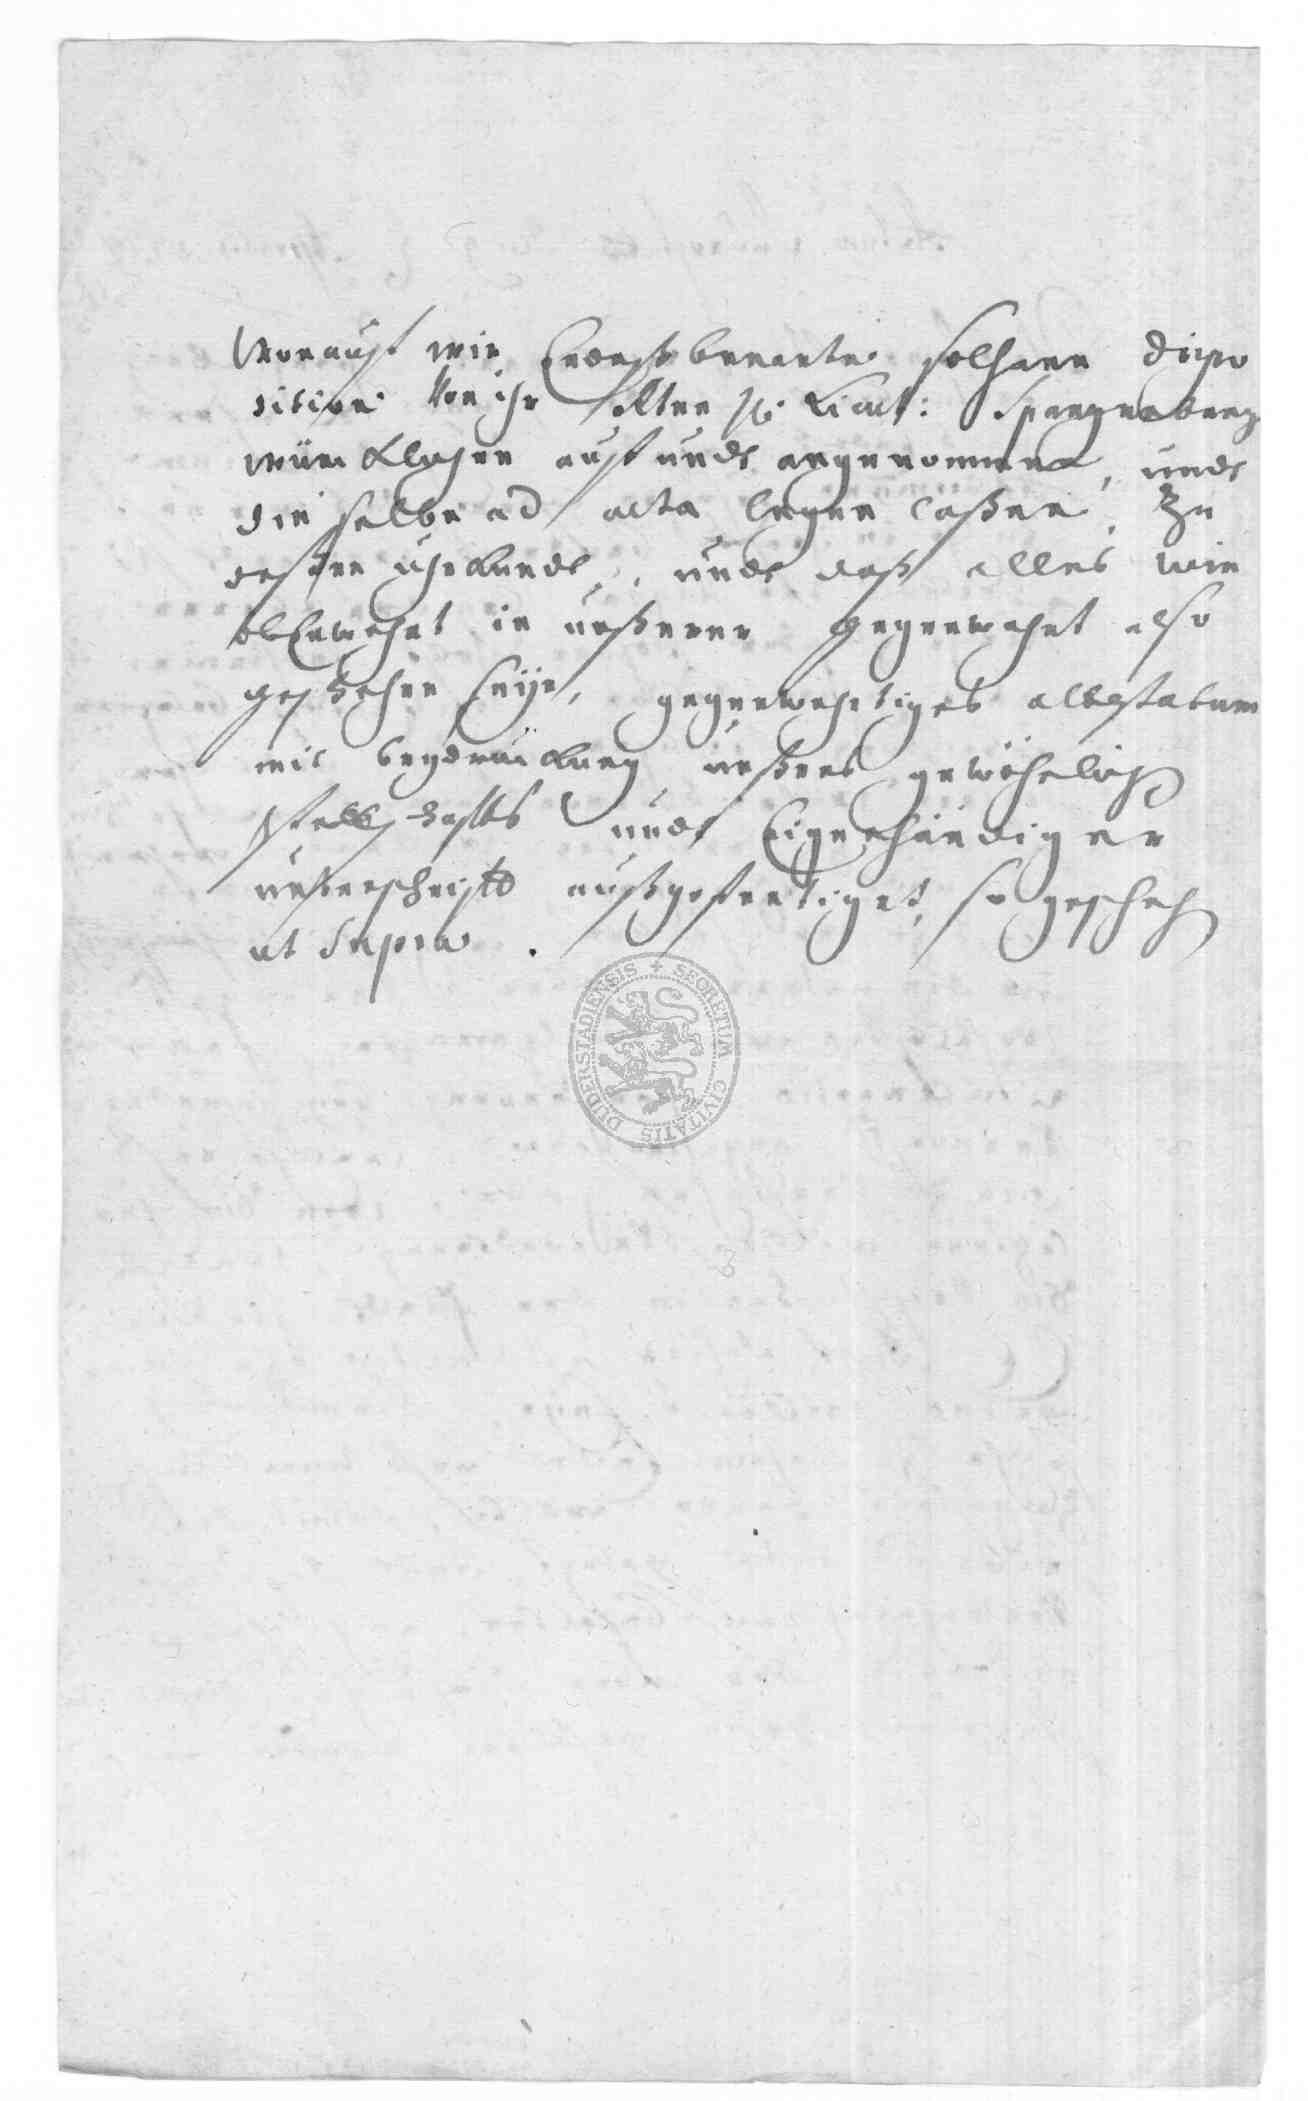 Worauff wir Endtsbenante solhane dispo
sition von ihr Fr. Licent: Spangenberg
würcklichen auff undt angenommen, undt
die selbe ad acta legen laßen. Zu
deßen uhrkundt, undt daß alles wie
obErwehnt in unßerer gegenwahrt also
geschehen seye, gegenwehrtiges attestatum
mit beydruckung unßeres gewöhnlich
Pettschaffts undt Eigenhändiger
unterschrifft außgefertiget, so geschehen
ut Supra.
SECRETUM CIVITATIS DUDERSTADIENSIS